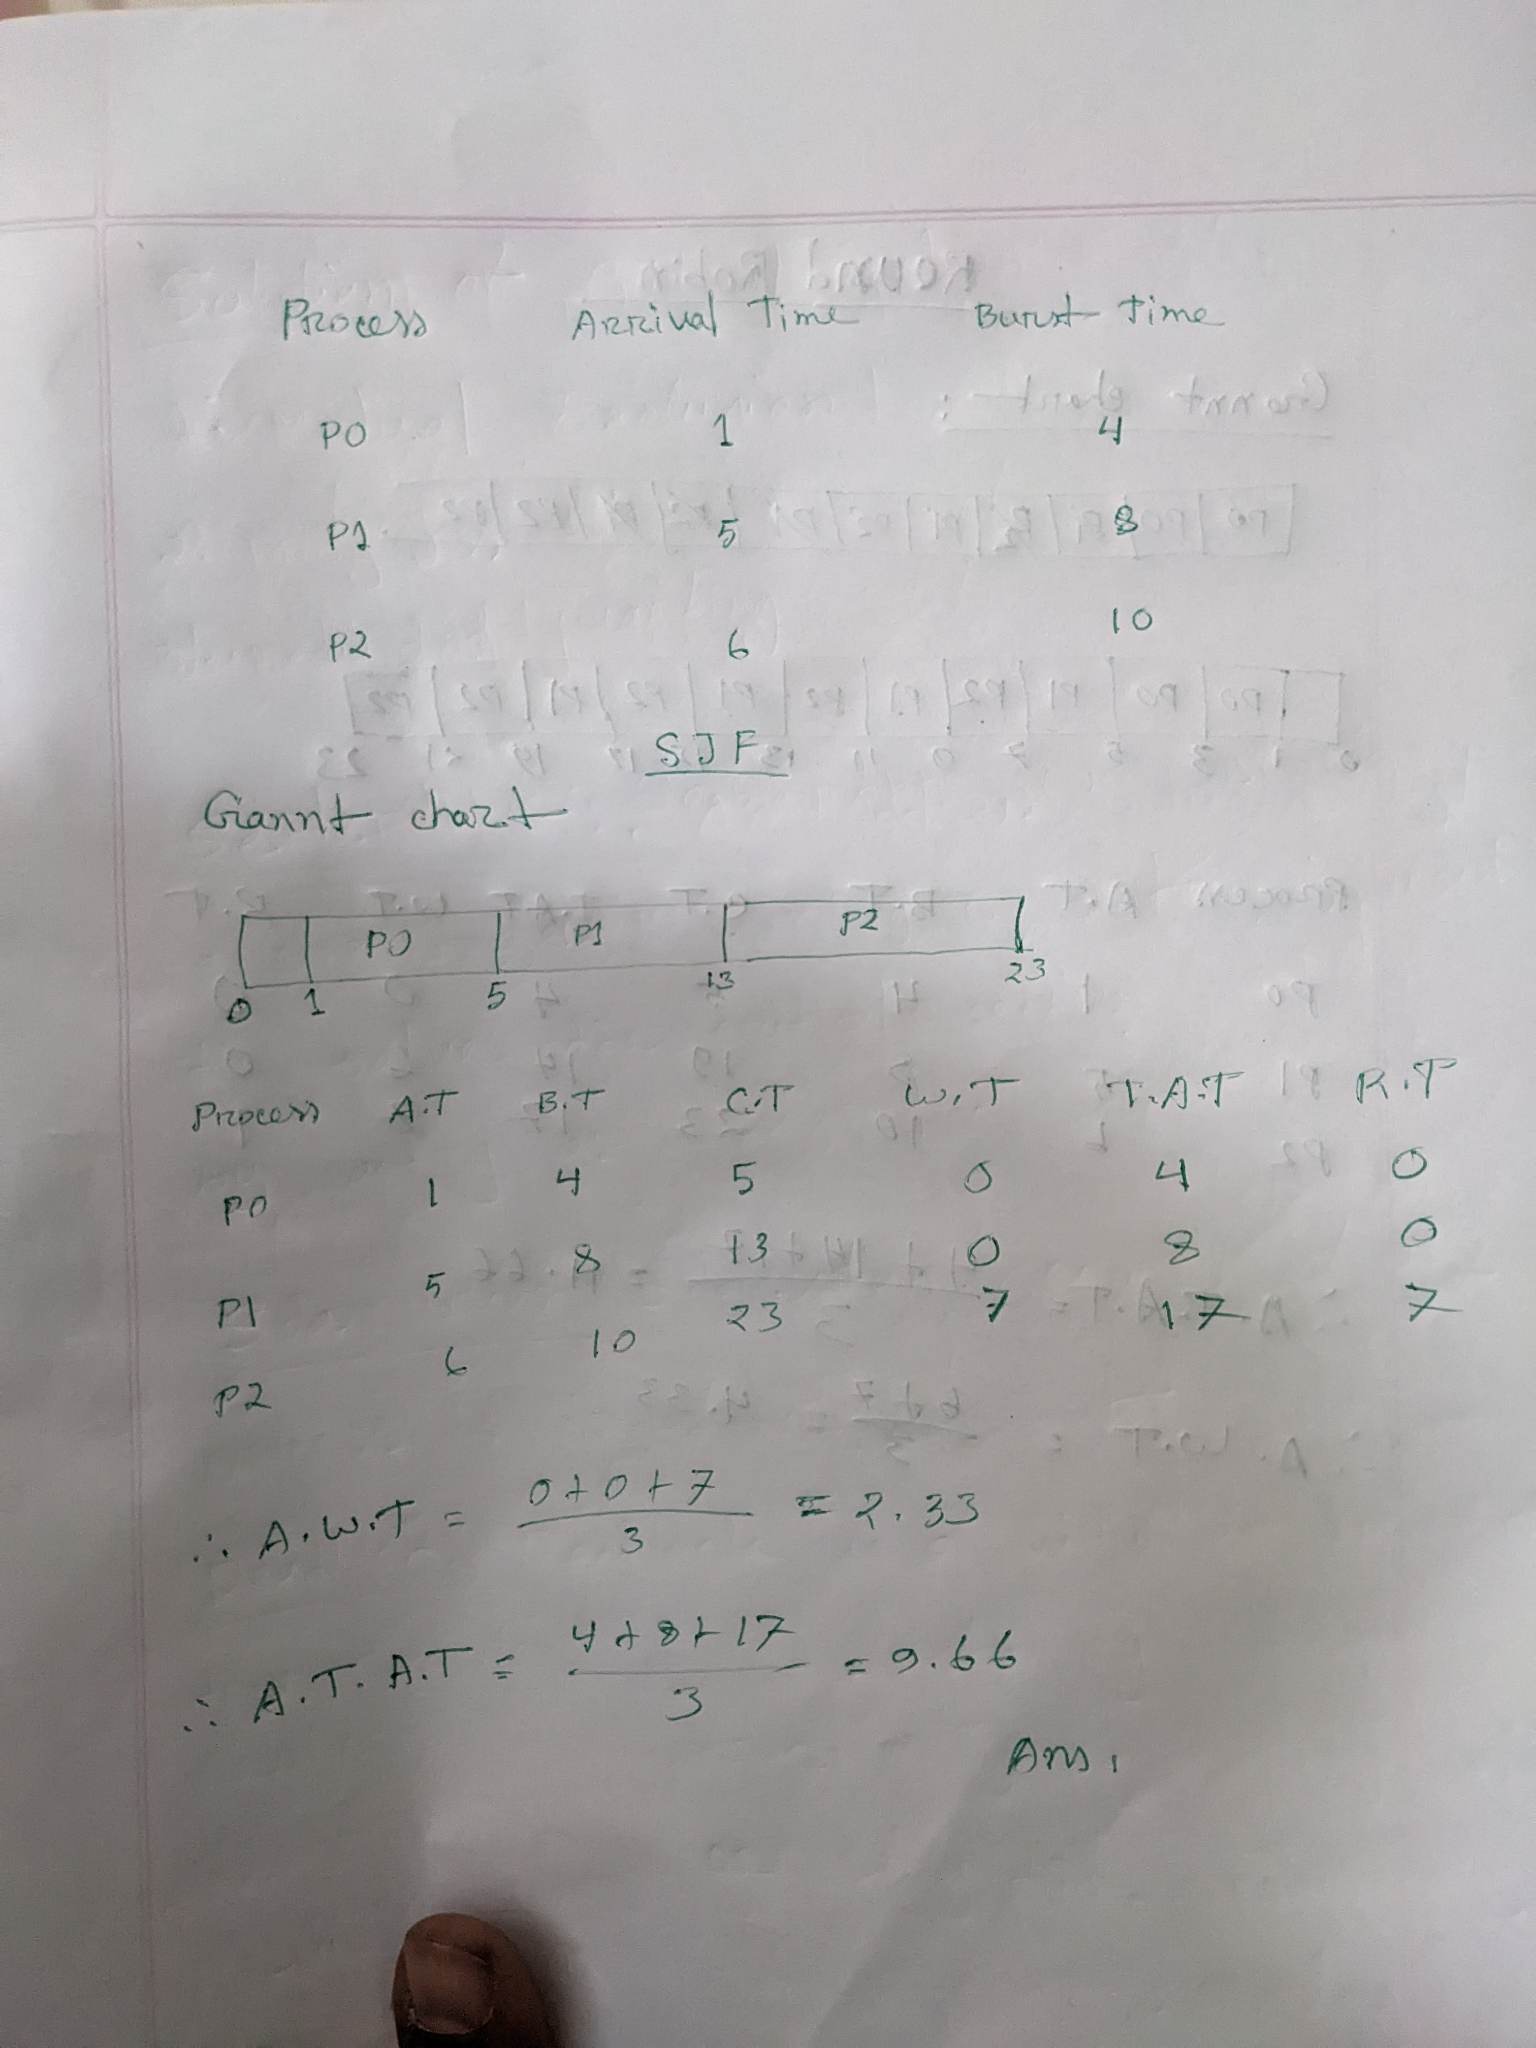 Process Arrival Time Burst Time
P0 1 4
P1 5 8
P2 6 10
SJF
Giannt chart
P0 P1 P2
0 1 5 13 23
Process A.T B.T C.T W.T T.A.T R.T
P0 1 4 5 0 4 0
P1 5 8 13 0 8 0
P2 6 10 23 7 17 7
∴ A.W.T = 0+0+7 / 3 = 2.33
∴ A.T.A.T = 4+8+17 / 3 = 9.66
Ans.